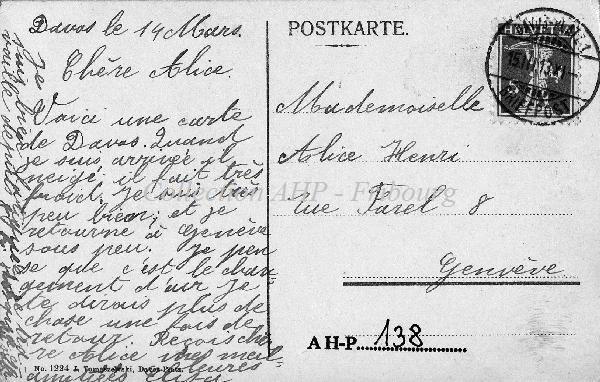 Davos le 14 Mars.
Chère Alice.
Voici une carte
de Davos. Quand
je suis arrivée il
neigé il fait très
froid. Je suis très
peu bien, et je
retourne à Genève
sous peu. Je pen-
se que c'est le chan-
gement d'air je
te dirais plus de
chose une fois de
retour. Reçois chè-
re Alice mes meil-
leures
amitiés
No. 1224 J. Davos-Platz.
POSTKARTE.
HELVETIA
Mademoiselle
Alice Henri
rue Farel 8
Genève
AH-P 138
Collection AHP - Fribourg